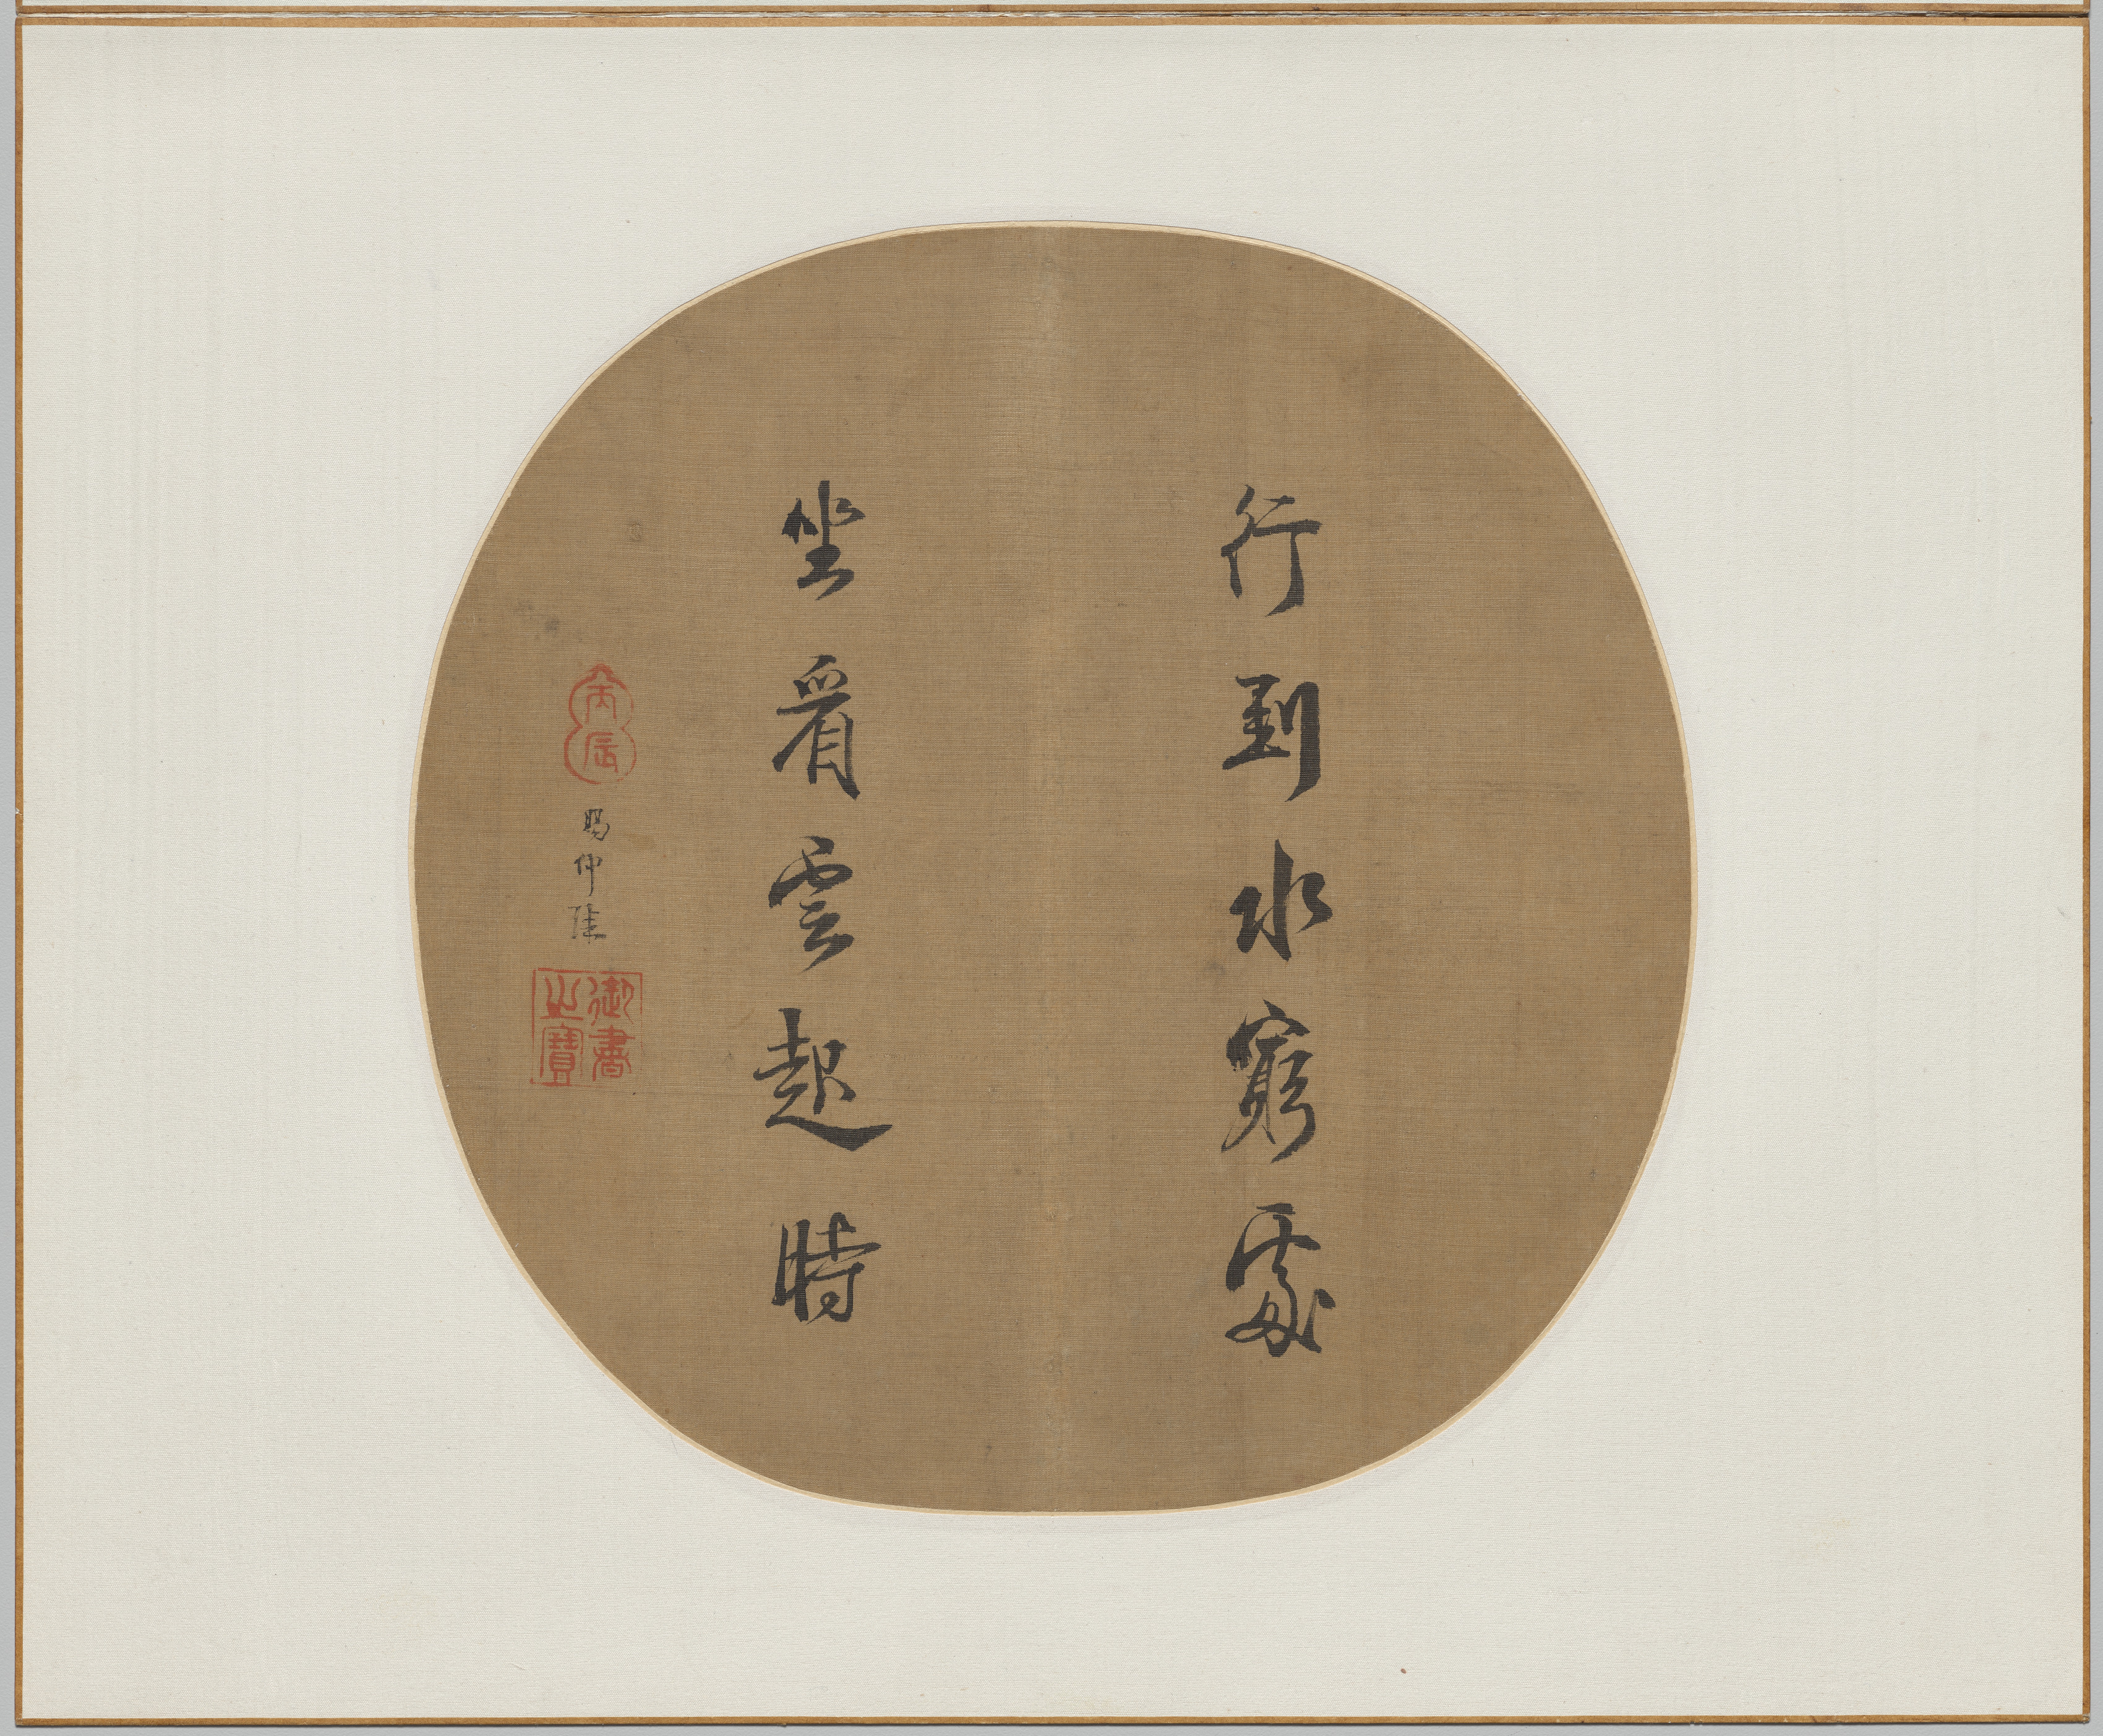 行到水窮處
坐看雲起時
丙辰
賜仲
御書
之寶